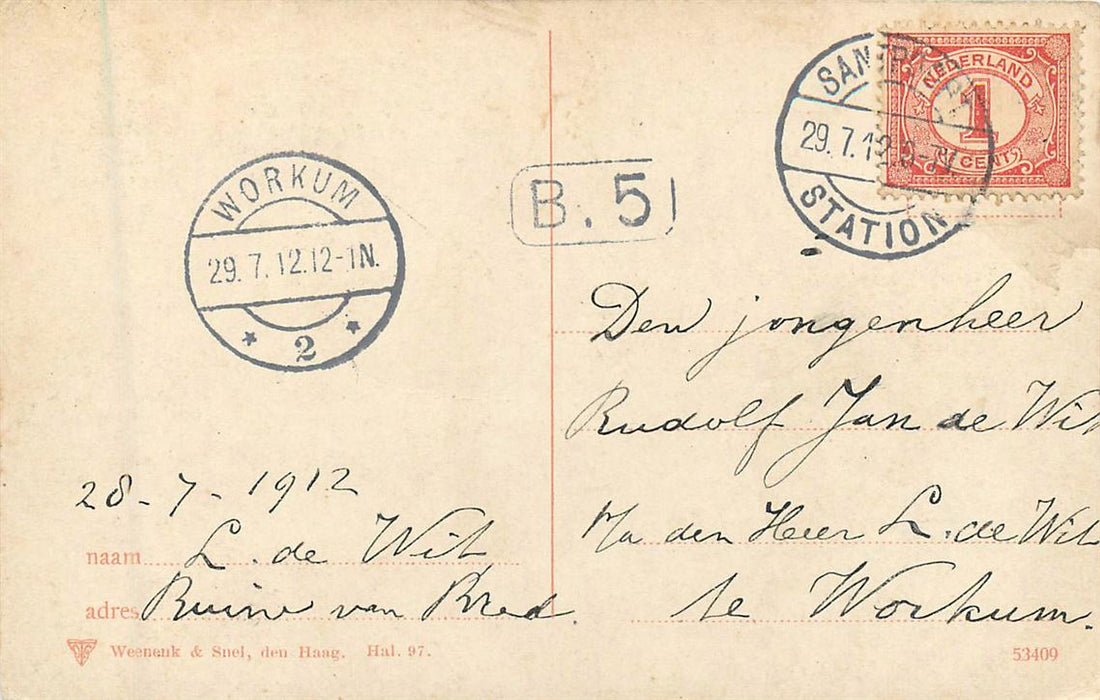 NEDERLAND
1
CENT
SANTPOORT
29.7.12.
STATION
WORKUM
29.7.12.12-1N.
2
B.5
Den jongenheer
Rudolf Jan de Wit
p/a den Heer L. de Wit
te Workum.
28-7-1912
naam L. de Wit
adres Ruine van Bred.
Weenenk & Snel, den Haag. Hal. 97.
53409